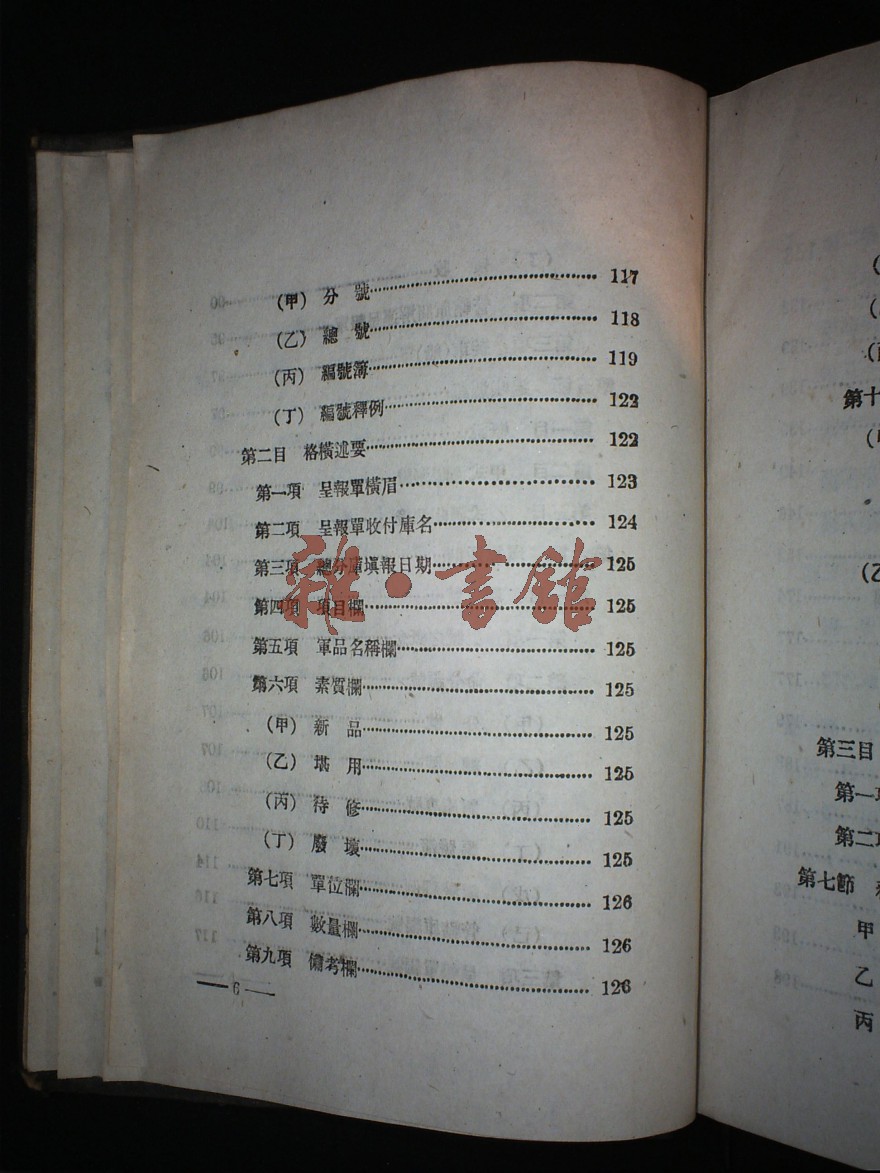 (甲) 分 號 117
(乙) 總 號 118
(丙) 編號簿 119
(丁) 編號釋例 122
第二目 格橫述要 122
第一項 呈報單橫眉 123
第二項 呈報單收付庫名 124
第三項 總分庫填報日期 125
第四項 項目欄 125
第五項 軍品名稱欄 125
第六項 素質欄 125
(甲) 新 品 125
(乙) 堪 用 125
(丙) 待 修 125
(丁) 廢 壞 125
第七項 單位欄 126
第八項 數量欄 126
第九項 備考欄 126
— 6 —
雜·書館
第十
第三目
第一
第二
第七節
甲
乙
丙